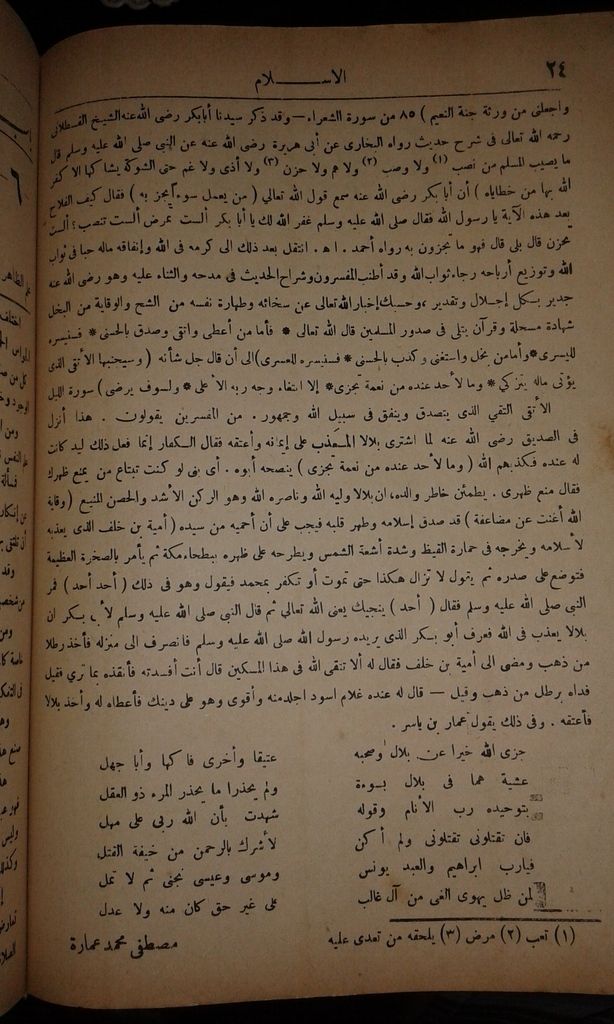 ٢٤
الاســـلام
واجعلنى من ورثة جنة النعيم ) ٨٥ من سورة الشعراء — وقد ذكر سيدنا أبا بكر رضى الله عنه الشيخ القسطلانى
رحمه الله تعالى فى شرح حديث رواه البخارى عن أبى هريرة رضى الله عنه عن النبى صلى الله عليه وسلم قال
ما يصيب المسلم من نصب (١) ولا وصب (٢) ولا هم ولا حزن (٣) ولا أذى ولا غم حتى الشوكة يشاكها الا كفر
الله بها من خطاياه ) أن أبا بكر رضى الله عنه سمع قول الله تعالى ( من يعمل سوءاً يجز به ) فقال كيف الفلاح
بعد هذه الآية يا رسول الله فقال صلى الله عليه وسلم غفر الله لك يا أبا بكر ألست تمرض ألست تنصب ؟ ألست
تحزن قال بلى قال فهو ما تجزون به رواه أحمد . ا ه . انتقل بعد ذلك الى كرمه فى الله وإنفاقه ماله حبا فى ثواب
الله وتوزيع أرباحه رجاء ثواب الله وقد أطنب المفسرون وشراح الحديث فى مدحه والثناء عليه وهو رضى الله عنه
جدير بكل إجلال وتقدير ، وحسبك إخبار الله تعالى عن سخائه وطهارة نفسه من الشح والوقاية من البخل
شهادة مسجلة وقرآن يتلى فى صدور المسلمين قال الله تعالى * فأما من أعطى واتقى وصدق بالحسنى * فسنيسره
لليسرى * وأما من بخل واستغنى وكذب بالحسنى * فسنيسره للعسرى ) الى أن قال جل شأنه ( وسيجنبها الأتقى الذى
يؤتى ماله يتزكى * وما لأحد عنده من نعمة تجزى * إلا ابتغاء وجه ربه الأعلى * ولسوف يرضى ) سورة الليل
الأتقى التقي الذى يتصدق وينفق فى سبيل الله وجمهور . من المفسرين يقولون . هذا أنزل
فى الصديق رضى الله عنه لما اشترى بلالا المعذب على إيمانه وأعتقه فقال الكفار إنما فعل ذلك ليد كانت
له عنده فكذبهم الله ( وما لأحد عنده من نعمة تجزى ) ينصحه أبوه . أى بنى لو كنت تبتاع من يمنع ظهرك
فقال منع ظهرى . يطمئن خاطر والده ، ان بلالا وليه الله وناصره الله وهو الركن الأشد والحصن المنيع ( وقاية
الله أغنت عن مضاعفة ) قد صدق إسلامه وطهر قلبه فيجب على أن أحميه من سيده ( أمية بن خلف الذى يعذبه
لأسلامه ويخرجه فى حمارة القيظ وشدة أشعة الشمس ويطرحه على ظهره ببطحاء مكة ثم يأمر بالصخرة العظيمة
فتوضع على صدره ثم يقول لا تزال هكذا حتى تموت أو تكفر بمحمد فيقول وهو فى ذلك ( أحد أحد ) فمر
النبى صلى الله عليه وسلم فقال ( أحد ) ينجيك يعنى الله تعالى ثم قال النبى صلى الله عليه وسلم لأبى بكر ان
بلالا يعذب فى الله فعرف أبو بكر الذى يريده رسول الله صلى الله عليه وسلم فانصرف الى منزله فأخذ رطلا
من ذهب ومضى الى أمية بن خلف فقال له ألا تتقى الله فى هذا المسكين قال أنت أفسدته فأنقذه بما ترى فقيل
فداه برطل من ذهب وقيل — قال له عنده غلام اسود اجلد منه وأقوى وهو على دينك فأعطاه له وأخذ بلالا
فأعتقه . وفى ذلك يقول عمار بن ياسر .
جزى الله خيرا عن بلال وصحبه عتيقا وأخزى فاكها وأبا جهل
عشية هما فى بلال بسوءة ولم يحذرا ما يحذر المرء ذو العقل
بتوحيده رب الأنام وقوله شهدت بأن الله ربى على مهل
فان تقتلونى تقتلونى ولم أكن لأشرك بالرحمن من خيفة القتل
فيارب ابراهيم والعبد يونس وموسى وعيسى نجنى ثم لا تمل
لمن ظل يهوى الغى من آل غالب على غير حق كان منه ولا عدل
مصطفى محمد عمارة
(١) تعب (٢) مرض (٣) يلحقه من تعدى عليه